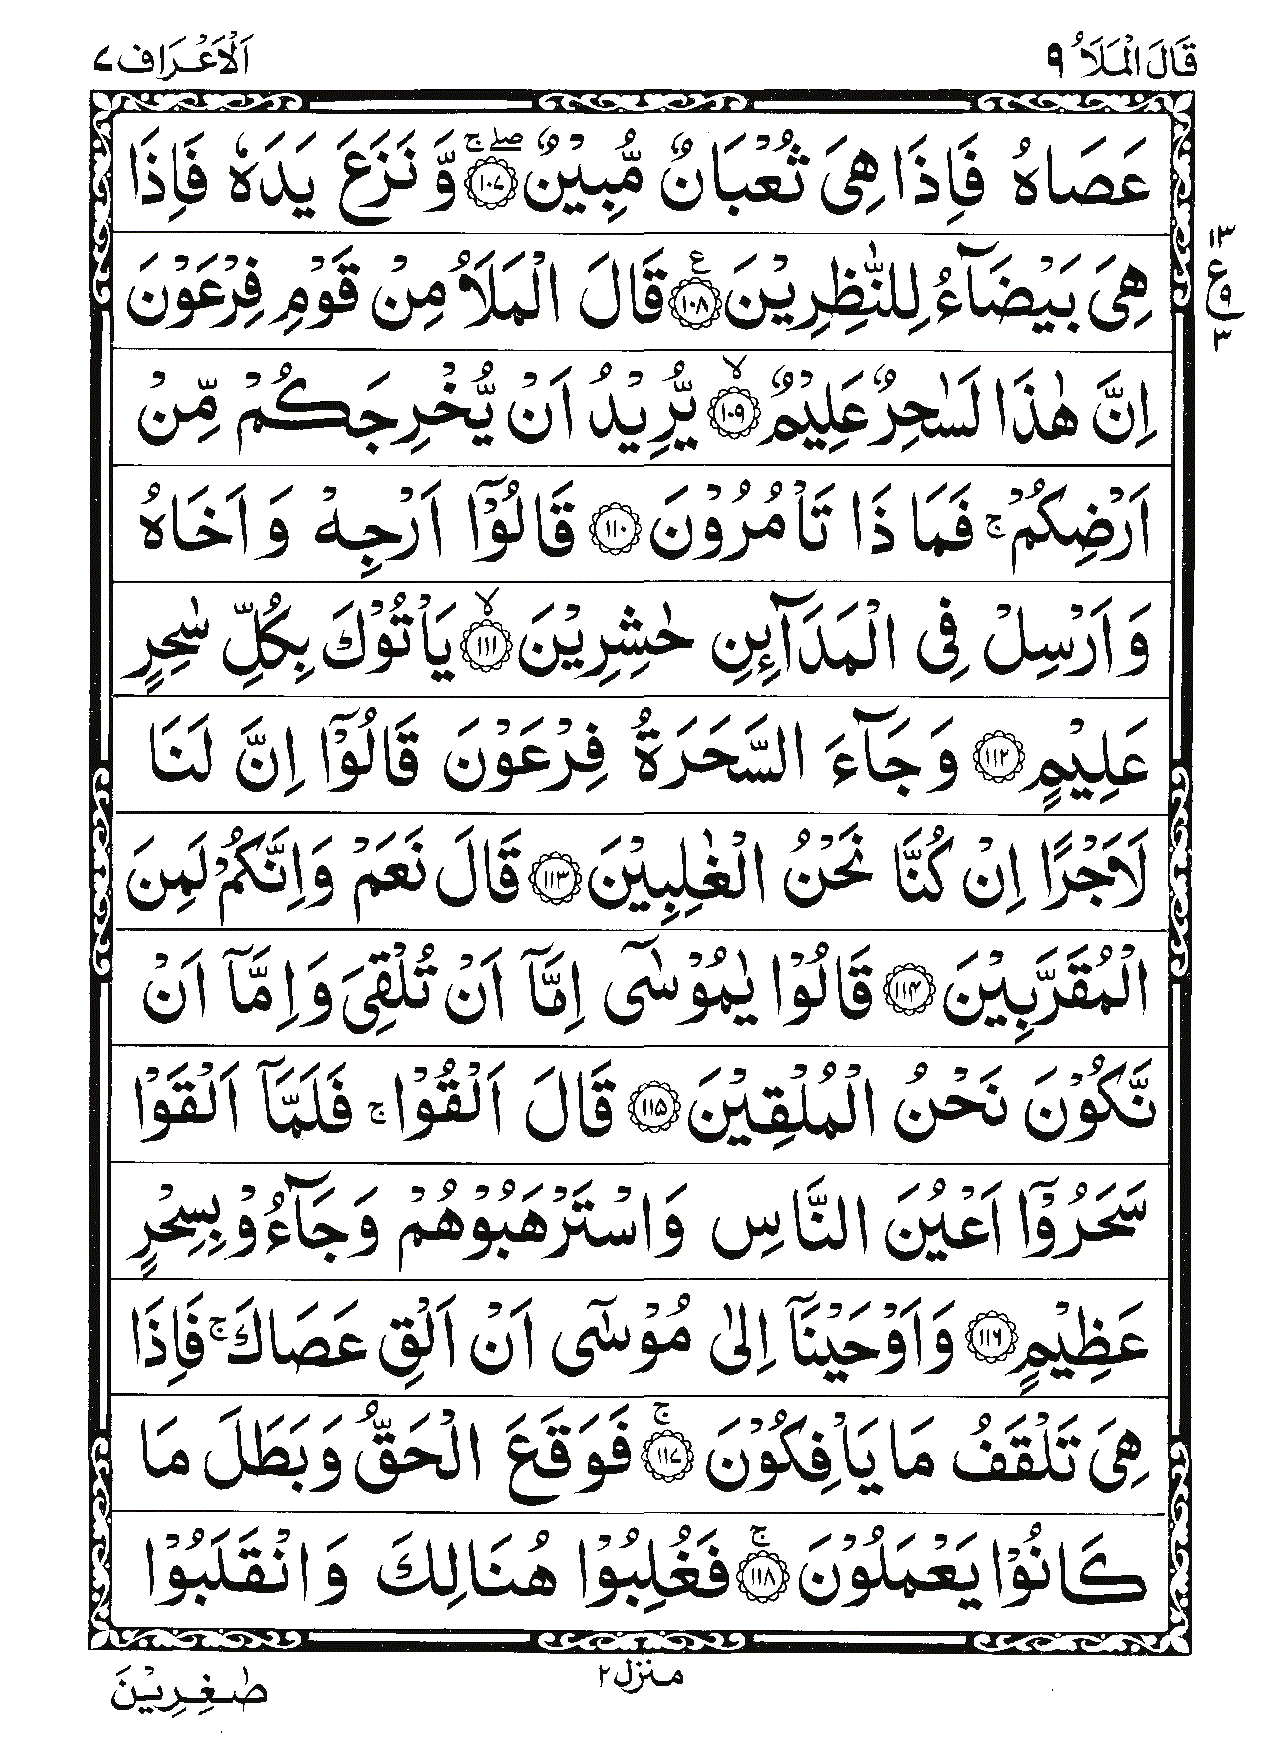 قَالَ الْمَلَاُ ٩
اَلْاَعْرَاف ٧
عَصَاهُ فَاِذَا هِیَ ثُعْبَانٌ مُّبِیْنٌ ۚۖ۝۱۰۷ وَّ نَزَعَ یَدَهٗ فَاِذَا
١٣
ع
٩
٣
هِیَ بَیْضَآءُ لِلنّٰظِرِیْنَ ۝۱۰۸ ع قَالَ الْمَلَاُ مِنْ قَوْمِ فِرْعَوْنَ
اِنَّ هٰذَا لَسٰحِرٌ عَلِیْمٌ ۙ۝۱۰۹ یُّرِیْدُ اَنْ یُّخْرِجَكُمْ مِّنْ
اَرْضِكُمْ ۚ فَمَا ذَا تَاْمُرُوْنَ ۝۱۱۰ قَالُوْۤا اَرْجِهْ وَ اَخَاهُ
وَ اَرْسِلْ فِی الْمَدَآىِٕنِ حٰشِرِیْنَ ۙ۝۱۱۱ یَاْتُوْكَ بِكُلِّ سٰحِرٍ
عَلِیْمٍ ۝۱۱۲ وَ جَآءَ السَّحَرَةُ فِرْعَوْنَ قَالُوْۤا اِنَّ لَنَا
لَاَجْرًا اِنْ كُنَّا نَحْنُ الْغٰلِبِیْنَ ۝۱۱۳ قَالَ نَعَمْ وَ اِنَّكُمْ لَمِنَ
الْمُقَرَّبِیْنَ ۝۱۱۴ قَالُوْا یٰمُوْسٰۤی اِمَّاۤ اَنْ تُلْقِیَ وَ اِمَّاۤ اَنْ
نَّكُوْنَ نَحْنُ الْمُلْقِیْنَ ۝۱۱۵ قَالَ اَلْقُوْا ۚ فَلَمَّاۤ اَلْقَوْا
سَحَرُوْۤا اَعْیُنَ النَّاسِ وَ اسْتَرْهَبُوْهُمْ وَ جَآءُوْ بِسِحْرٍ
عَظِیْمٍ ۝۱۱۶ وَ اَوْحَیْنَاۤ اِلٰی مُوْسٰۤی اَنْ اَلْقِ عَصَاكَ ۚ فَاِذَا
هِیَ تَلْقَفُ مَا یَاْفِكُوْنَ ۚ۝۱۱۷ فَوَقَعَ الْحَقُّ وَ بَطَلَ مَا
كَانُوْا یَعْمَلُوْنَ ۚ۝۱۱۸ فَغُلِبُوْا هُنَالِكَ وَ انْقَلَبُوْا
منزل ٢
صٰغِرِیْنَ